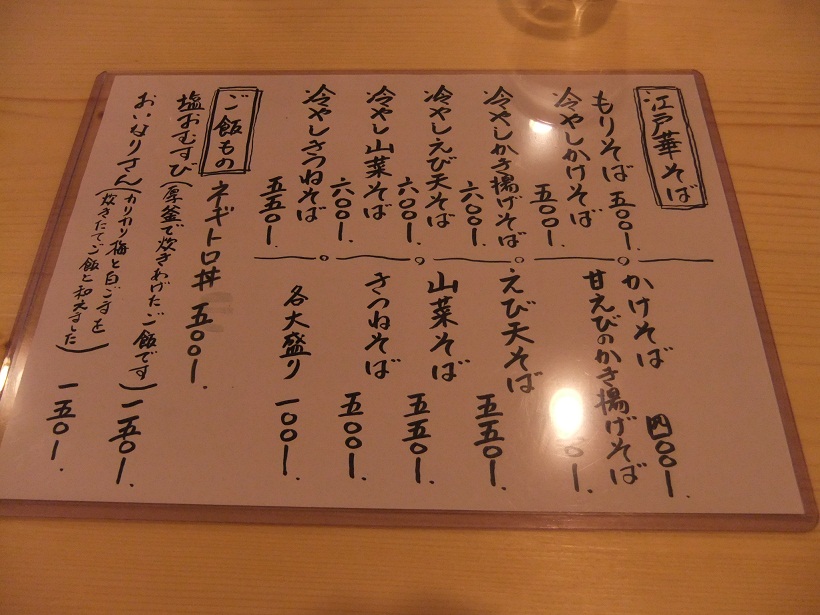 江戸華そば
もりそば 五〇〇ー.
冷やしかけそば 五〇〇ー.
冷やしかき揚げそば 六〇〇ー.
冷やしえび天そば 六〇〇ー.
冷やし山菜そば 六〇〇ー.
冷やしきつねそば 五五〇ー.
かけそば 四〇〇ー.
甘えびのかき揚げそば
えび天そば 五五〇ー.
山菜そば 五五〇ー.
きつねそば 五〇〇ー.
各大盛り 一〇〇ー.
ご飯もの
ネギトロ丼 五〇〇ー.
塩おむすび(厚釜で炊きあげたご飯です) 一五〇ー.
おいなりさん(カリカリ梅と白ごまを
炊きたてご飯と和えました) 一五〇ー.